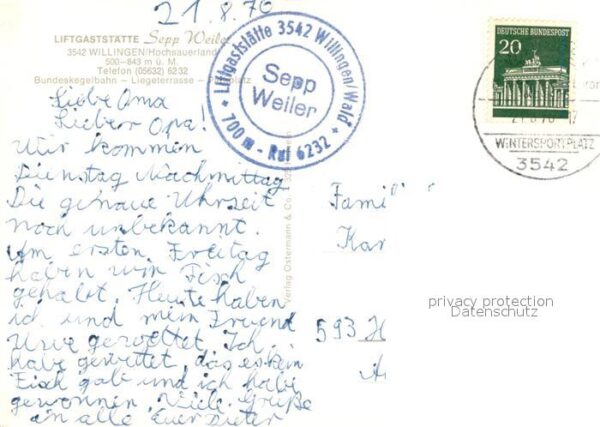 21.8.70
LIFTGASTSTÄTTE Sepp Weiler
3542 WILLINGEN/Hochsauerland
500-843 m ü. M.
Telefon (05632) 6232
Bundeskegelbahn – Liegeterrasse –
Liftgaststätte 3542 Willingen/Wald
Sepp
Weiler
* 700 m - Ruf 6232 *
DEUTSCHE BUNDESPOST
20
WINTERSPORTPLATZ
3542
Liebe Oma
Lieber Opa!
Wir kommen
Dienstag Nachmittag
Die genaue Uhrzeit
noch unbekannt.
Am ersten Freitag
haben wir Fisch
gehabt. Heute haben
ich und mein Freund
Uwe gewettet. Ich
habe gewettet, das es kein
Fisch gab und ich habe
gewonnen. Viele Grüße
an alle Euer Dieter
Verlag Ostermann & Co.
Famil
Kar
593 H
privacy protection
Datenschutz